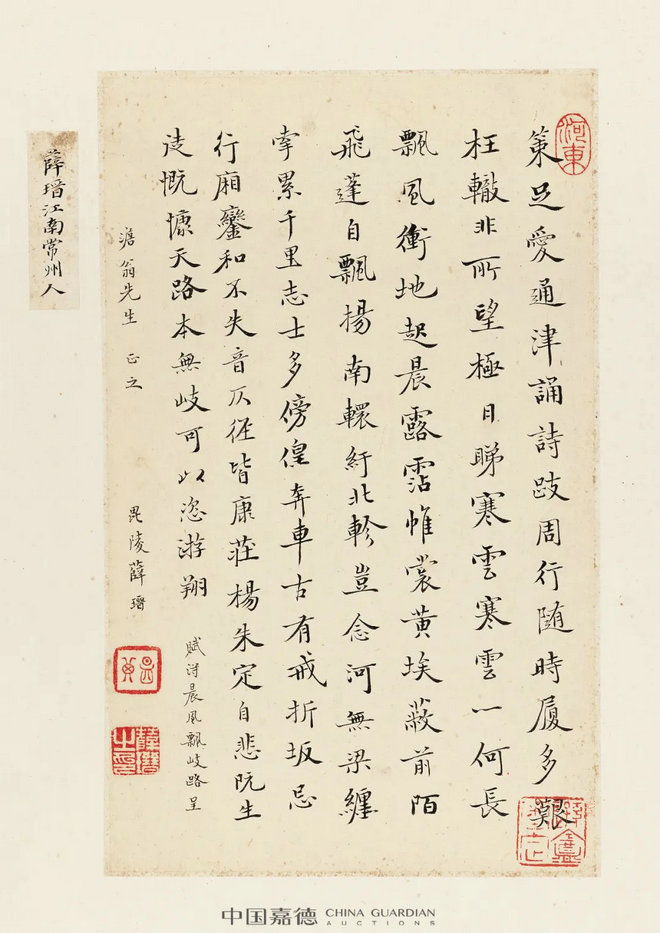 策足愛通津誦詩跂周行随時履多艱
枉轍非所望極目睇寒雲寒雲一何長
飄風衝地起晨露霑帷裳黄埃蔽前陌
飛蓬自飄揚南轅紆北軫豈念河無梁纏
牽累千里志士多傍偟奔車古有戒折坂忌
行廂鑾和不失音仄徑皆康莊楊朱定自悲阮生
徒慨慷天路本無岐可以恣游翔
賦得晨風飄岐路呈
澹翁先生 正之
毘陵薛瑨
薛瑨江南常州人
河東
中国嘉德 CHINA GUARDIAN
AUCTIONS